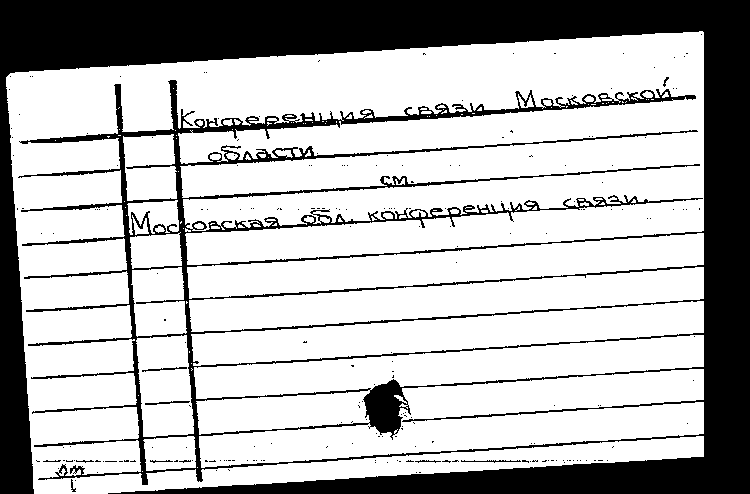 Конференция связи Московской
области
см.
Московская обл. конференция связи.